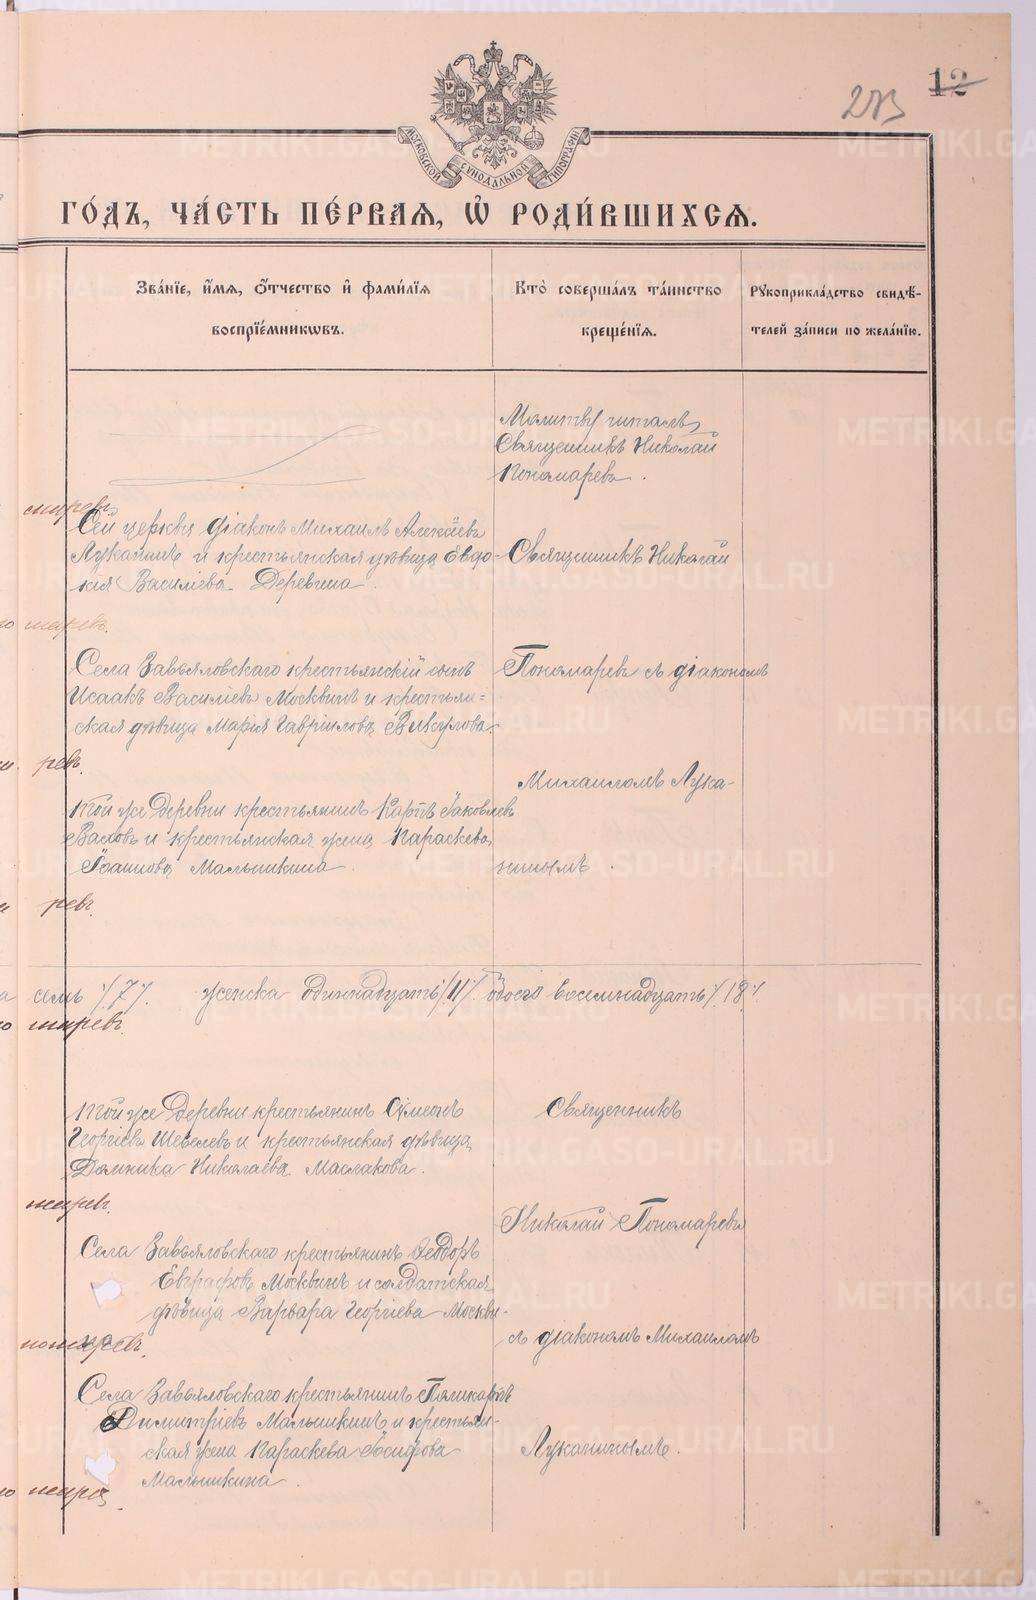 12
МОСКОВСКОЙ СУНОДАЛЬНОЙ ТИПОГРАФІИ
ГО́ДЪ, ЧА́СТЬ ПЕ́РВАѦ, Ѽ РОДИ́ВШИХСѦ.
Зва́нїе, и҆́мѧ, ѻ҆́тчество и҆ фами́лїѧ
воспрїе́мникѡвъ.
Кто̀ соверша́лъ та́инство
креще́нїѧ.
Рꙋкоприкла́дство свидѣ́-
телей за́писи по жела́нїю.
Молитву читалъ
Священникъ Николай
Пономаревъ.
Сей церкви діаконъ Михаилъ Алексіевъ
Луканинъ и крестьянская дѣвица Евдо-
кія Василіева Деревнина.
Священникъ Николай
Села Завьяловскаго крестьянскій сынъ
Исаакъ Василіевъ Москвинъ и крестьян-
ская дѣвица Марія Гавріилова Викулова.
Пономаревъ съ діакономъ
Той же деревни крестьянинъ Карпъ Іаковлевъ
Ваховъ и крестьянская жена Параскева
Іоаннова Малышкина.
Михаиломъ Лука-
нинымъ.
семь /7/. женска одиннадцать /11/. обоего восемнадцать /18/
Той же деревни крестьянинъ Сѵмеонъ
Георгіевъ Шевелевъ и крестьянская дѣвица
Домника Николаева Маслакова.
Священникъ
Николай Пономаревъ
Села Завьяловскаго крестьянинъ Ѳеодоръ
Евграфовъ Москвинъ и солдатская
дѣвица Варвара Георгіева Москви-
на
съ діакономъ Михаиломъ
Села Завьяловскаго крестьянинъ Поликарпъ
Димитріевъ Малышкинъ и крестьян-
ская жена Параскева Іосифова
Малышкина.
Луканинымъ.
METRIKI.GASO-URAL.RU